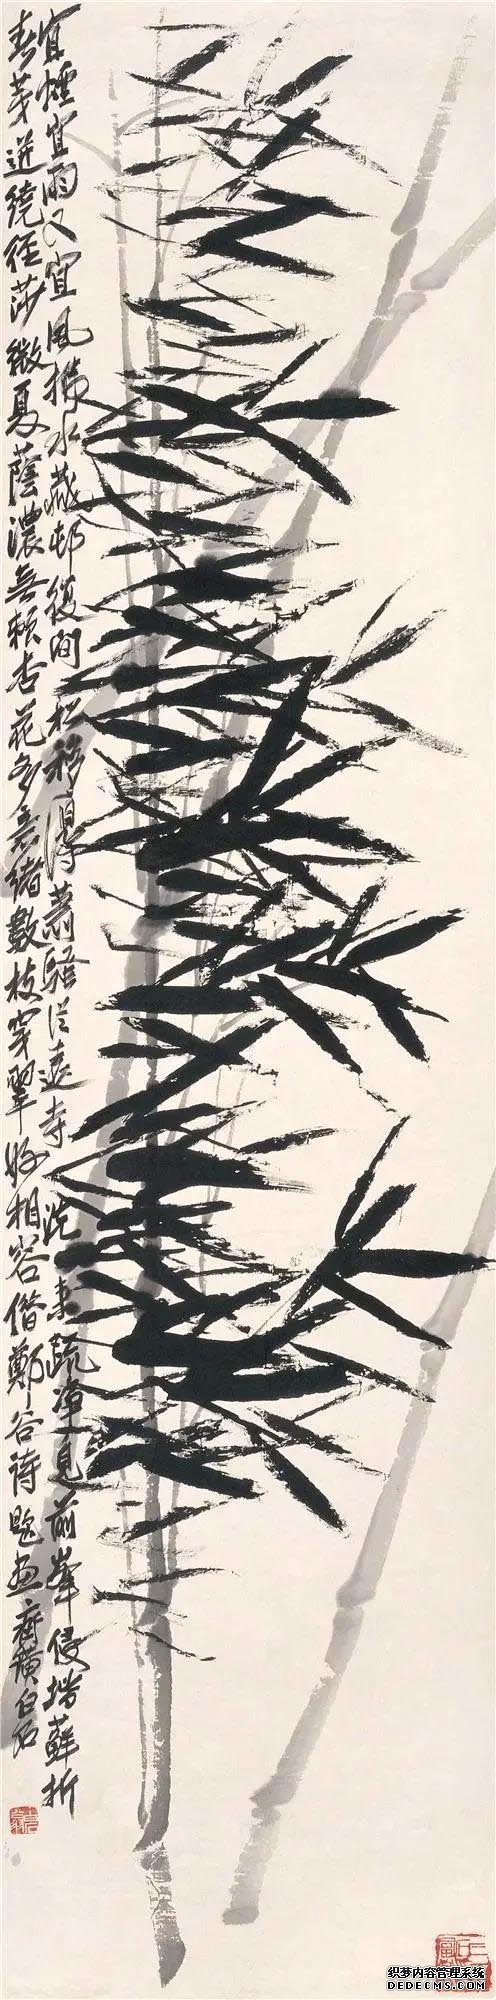 宜煙宜雨又宜風拂水藏邨復間松移得蕭騷從遠寺洗來疏淨見前峯侵堦蘚折
春芽迸繞徑莎微夏蔭濃無賴杏花多意緒數枝穿翠好相容借鄭谷詩題畫齊璜白石
织梦内容管理系统
DEDECMS.COM